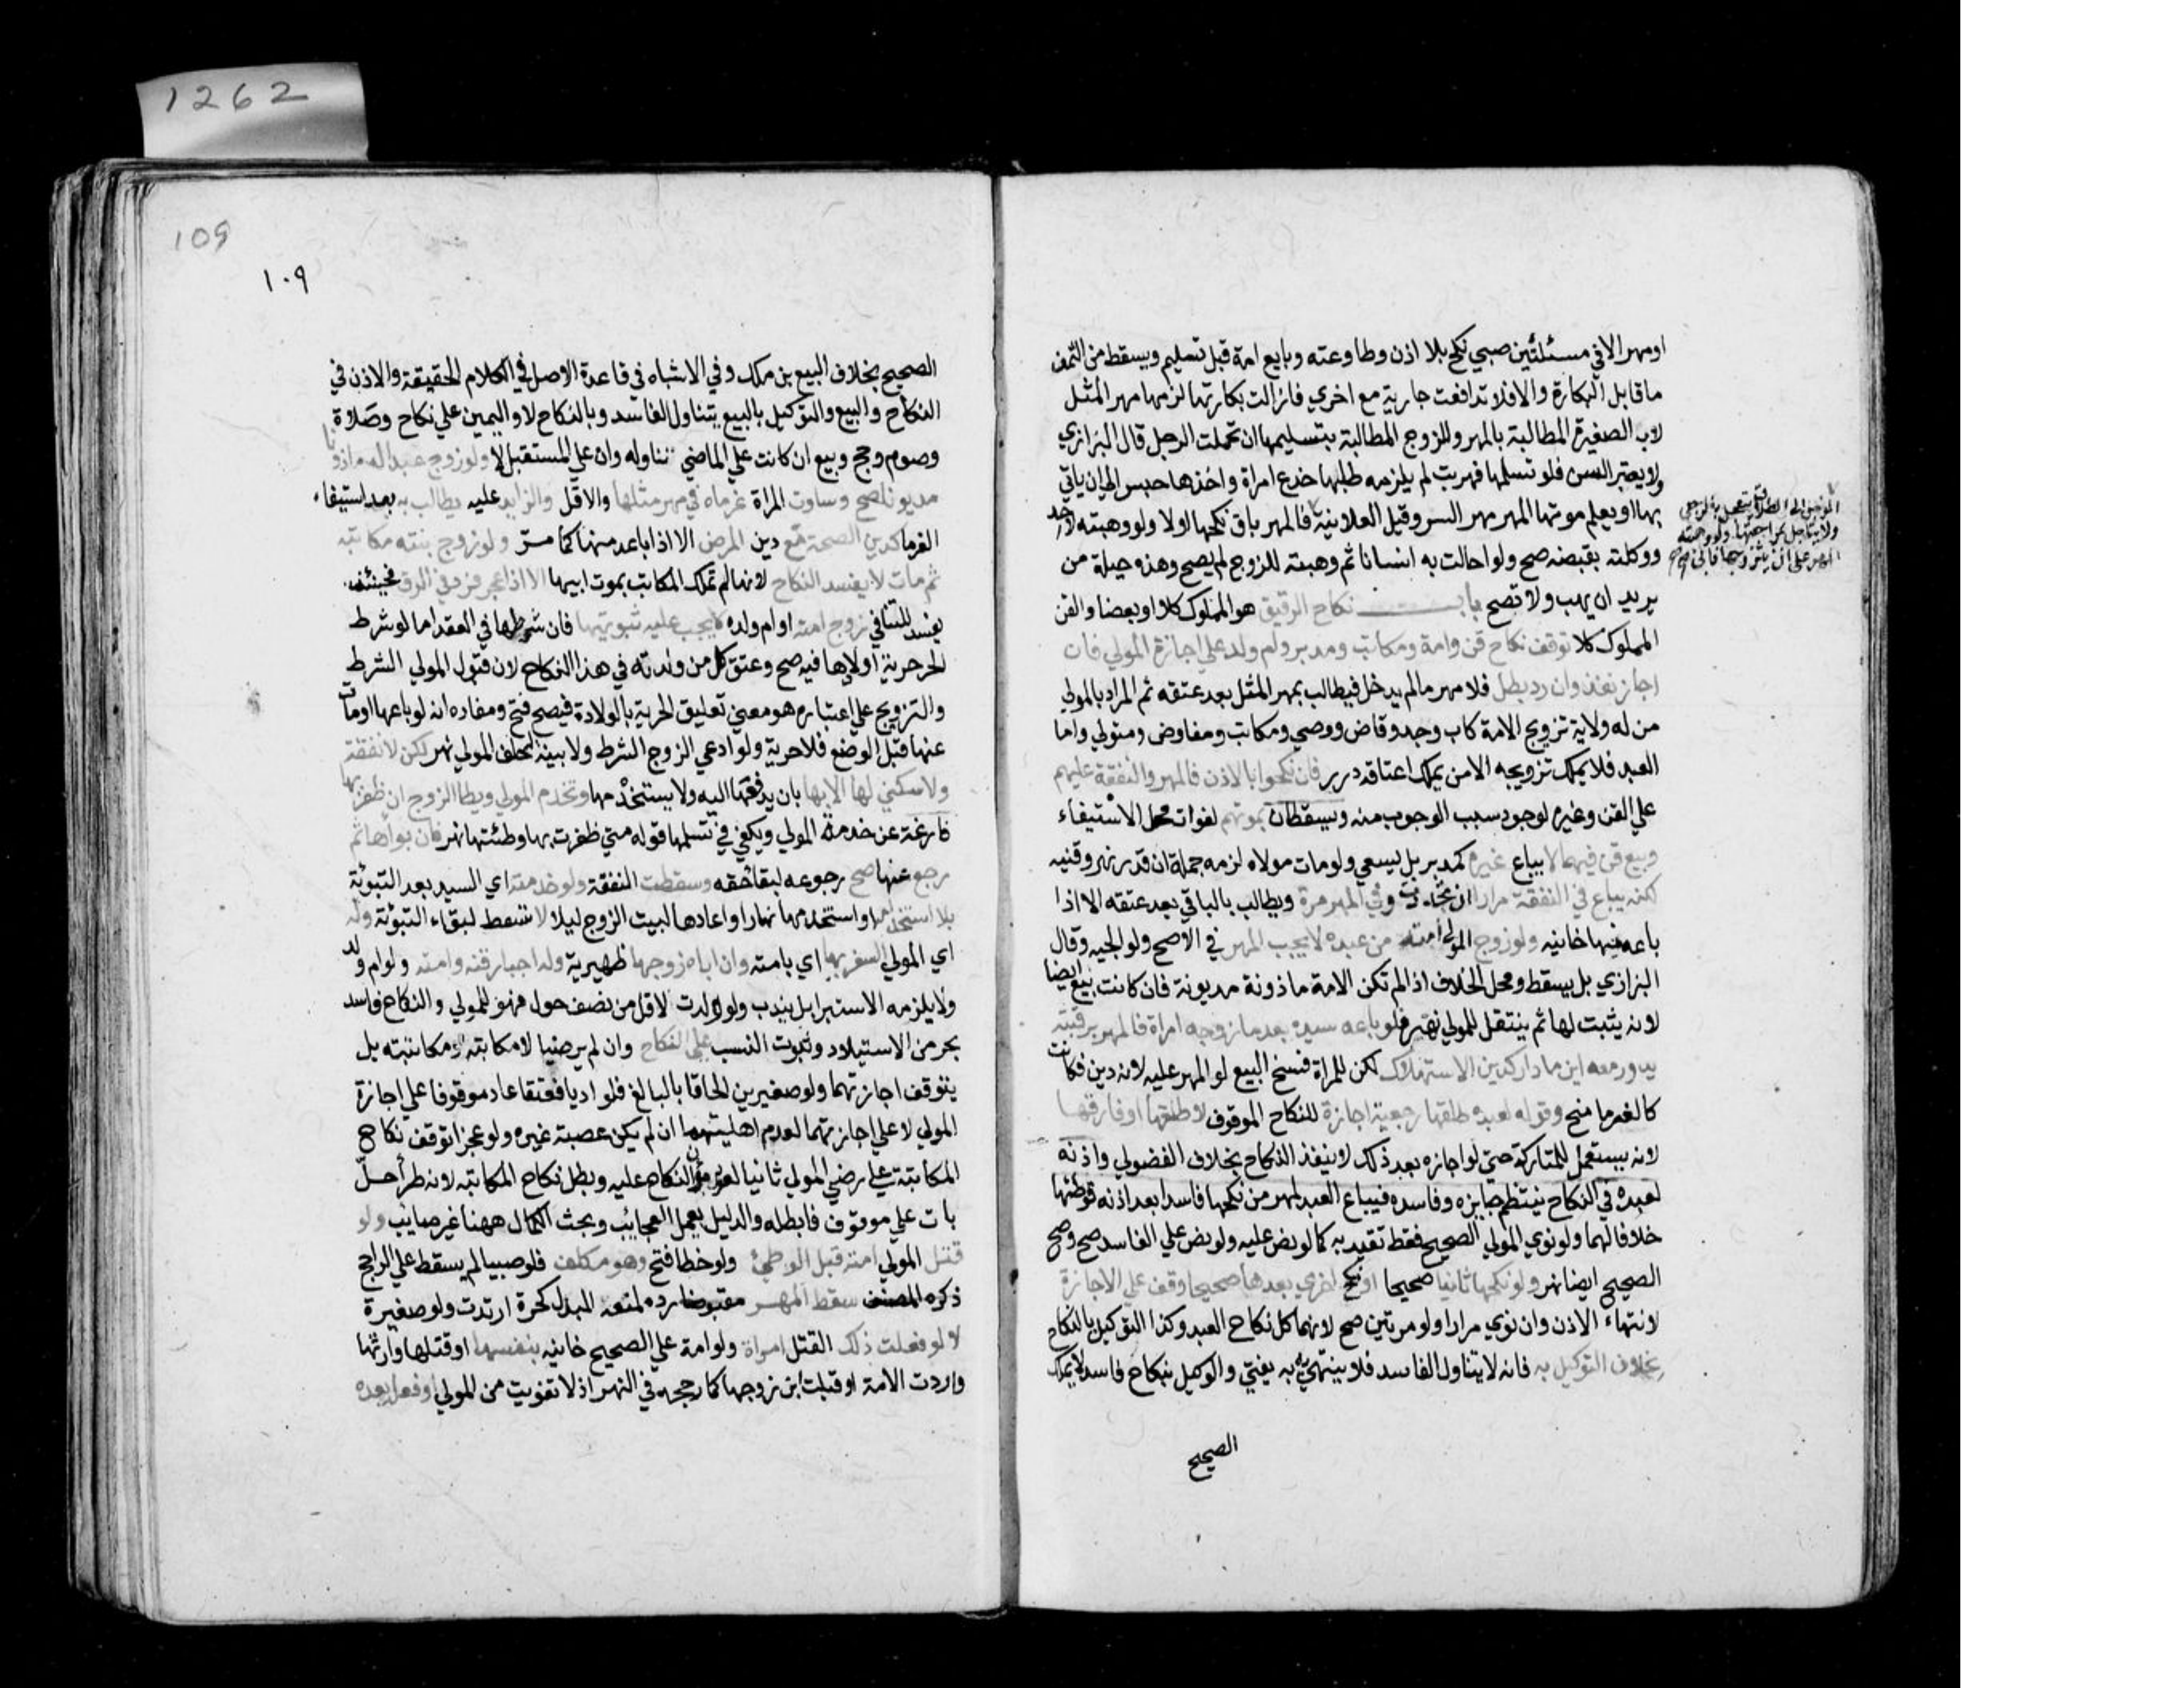 اومهر الا في مسئلتين صبي نكح بلا اذن وطاوعته وبايع امة قبل تسليم ويسقط من الثمن
ما قابل البكارة والا فلا تدافعت جارية مع اخري فازالت بكارتها لزمها مهر المثل
لاب الصغيرة المطالبة بالمهر وللزوج المطالبة بتسليمها ان تحملت الرجل قال البزازي
ولا يعتبر السن فلو تسلمها فهربت لم يلزمه طلبها خدع امراة واخذها حبس الي ان ياتي
بها او يعلم موتها المهر مهر السر وقيل العلانية
المؤجل الي الطلاق يتعجل بالرجعي
ولا يتاجل بمراجعتها ولو وهبته
المهر علي ان يتزوجها فابي صح
فالمهر باق نكحها اولا ولو وهبته لاحد
ووكلته بقبضه صح ولو احالت به انسانا ثم وهبته للزوج لم يصح وهذه حيلة من
يريد ان يهب ولا تصح باب نكاح الرقيق هو المملوك كلا او بعضا والقن
المملوك كلا توقف نكاح قن وامة ومكاتب ومدبر وام ولد علي اجازة المولي فان
اجاز نفذ وان رد بطل فلا مهر ما لم يدخل فيطالب بمهر المثل بعد عتقه ثم المراد بالمولي
من له ولاية تزويج الامة كاب وجد وقاض ووصي ومكاتب ومفاوض ومتولي واما
العبد فلا يملك تزويجه الا من يملك اعتاقه درر فان نكحوا بالاذن فالمهر والنفقة عليهم
علي القن وغيره لوجود سبب الوجوب منه ويسقطان بموتهم لفوات محل الاستيفاء
وبيع قن فيهما لا يباع غيره كمدبر بل يسعي ولو مات مولاه لزمه جملة ان قدر نهر وقنيه
لكنه يباع في النفقة مرارا ان تجددت وفي المهر مرة ويطالب بالباقي بعد عتقه الا اذا
باعه منها خانيه ولو زوج المولي امته من عبده لا يجب المهر في الاصح ولوالجيه وقال
البزازي بل يسقط ومحل الخلاف اذا لم تكن الامة ماذونة مديونة فان كانت بيع ايضا
لانه يثبت لها ثم ينتقل للمولي نهر فلو باعه سيده بعد ما زوجه امراة فالمهر برقبته
يدور معه اين ما دار كدين الاستهلاك لكن للمراة فسخ البيع لو المهر عليه لانه دين فكانت
كالغرما منح وقوله لعبده طلقها رجعية اجازة للنكاح الموقوف لا طلقها او فارقها
لانه يستعمل للمتاركة حتي لو اجازه بعد ذلك لا ينفذ النكاح بخلاف الفضولي واذنه
لعبده في النكاح ينتظم جايزه وفاسده فيباع العبد لمهر من نكحها فاسدا بعد اذنه فوطئها
خلافا لهما ولو نوي المولي الصحيح فقط تقيد به كما لو نص عليه ولو نص علي الفاسد صح وصح
الصحيح ايضا نهر ولو نكحها ثانيا صحيحا او نكح اخري بعدها صحيحا وقف علي الاجازة
لانتهاء الاذن وان نوي مرارا ولو مرتين صح لانهما كل نكاح العبد وكذا التوكيل بالنكاح
بخلاف التوكيل به فانه لا يتناول الفاسد فلا ينتهي به به يفتي والوكيل بنكاح فاسد لا يملك
الصحيح
1262
109
١٠٩
الصحيح بخلاف البيع بن ملك وفي الاشباه في قاعدة الاصل في الكلام الحقيقة والاذن في
النكاح والبيع والتوكيل بالبيع يتناول الفاسد وبالنكاح لا واليمين علي نكاح وصلاة
وصوم وحج وبيع ان كانت علي الماضي تناوله وان علي المستقبل لا ولو زوج عبدا له ماذونا
مديونا صح وساوت المراة غرماه في مهر مثلها والاقل والزايد عليه يطالب به بعد استيفاء
الغرما كدين الصحة مع دين المرض الا اذا باعه منها كما مر ولو زوج بنته مكاتبه
ثم مات لا يفسد النكاح لانها لم تملك المكاتب بموت ابيها الا اذا عجز فرد في الرق فحينئذ
يفسد للتنافي زوج امته او ام ولده لا يجب عليه تبوئتها فان شرطها في العقد اما لو شرط
الحر حرية اولادها فيه صح وعتق كل من ولدته في هذا النكاح لان قبول المولي الشرط
والتزويج علي اعتباره هو معني تعليق الحرية بالولادة فيصح فتح ومفاده انه لو باعها او مات
عنها قبل الوضع فلا حرية ولو ادعي الزوج الشرط ولا بينة له حلف المولي نهر لكن لا نفقة
ولا سكني لها الا بها بان يدفعها اليه ولا يستخدمها وتخدم المولي ويطا الزوج ان ظفر بها
فارغة عن خدمة المولي ويكفي في تسلمها قوله متي ظفرت بها وطئتها نهر فان بواها ثم
رجع عنها صح رجوعه لبقا حقه وسقطت النفقة ولو خدمته اي السيد بعد التبوئة
بلا استخدامه او استخدمها نهارا واعادها لبيت الزوج ليلا لا تسقط لبقاء التبوئة وله
اي المولي السفر بها اي بامته وان اباه زوجها ظهيرية وله اجبار قنه وامته ولو ام ولد
ولا يلزمه الاستبرا بل يندب ولو ولدت لاقل من نصف حول فهو للمولي والنكاح فاسد
بحر من الاستيلاد وثبوت النسب علي النكاح وان لم يرضيا لا مكاتبه ومكاتبته بل
يتوقف اجازتهما ولو صغيرين الحاقا بالبالغ فلو اديا فعتقا عاد موقوفا علي اجازة
المولي لا علي اجازتهما لعدم اهليتهما ان لم يكن عصبة غيره ولو عجزا توقف نكاح
المكاتبة علي رضي المولي ثانيا لعود مؤن النكاح عليه وبطل نكاح المكاتبه لانه طرا حل
بات علي موقوف فابطله والدليل يعمل العجايب وبحث الكمال ههنا غير صايب ولو
قتل المولي امته قبل الوطئ ولو خطا فتح وهو مكلف فلو صبيا لم يسقط علي الراجح
ذكره المصنف سقط المهر مقبوضا رده لمنعه المبدل كحرة ارتدت ولو صغيرة
لا لو فعلت ذلك القتل امراة ولو امة علي الصحيح خانيه بنفسها او قتلها وارثها
واردت الامة او قبلت ابن زوجها كما رجحه في النهر اذ لا تفويت من المولي او فعل بعده